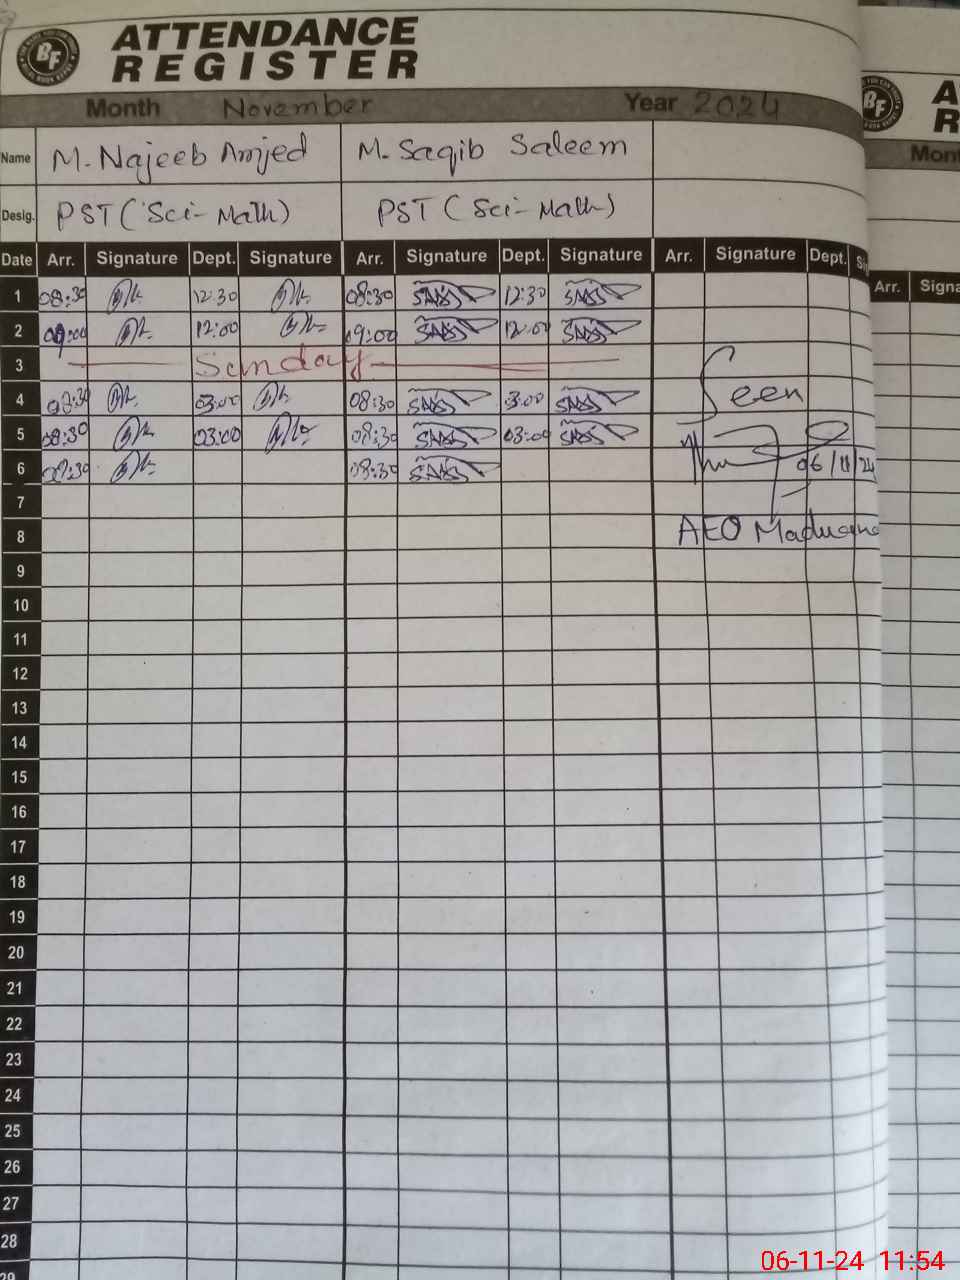 ATTENDANCE
REGISTER
BF
Month November Year 2024
Name M. Najeeb Amjed M. Saqib Saleem
Desig. PST (Sci-Math) PST (Sci-Math)
Date Arr. Signature Dept. Signature Arr. Signature Dept. Signature Arr. Signature Dept.
1 08:30 12:30 08:30 12:30
2 09:00 12:00 09:00 12:00
3 Sunday
4 08:30 03:00 08:30 3:00 Seen
5 08:30 03:00 08:30 03:00
6 08:30 08:30 06/11/24
7
8 AEO
9
10
11
12
13
14
15
16
17
18
19
20
21
22
23
24
25
26
27
28
29
BF
Arr.
06-11-24 11:54